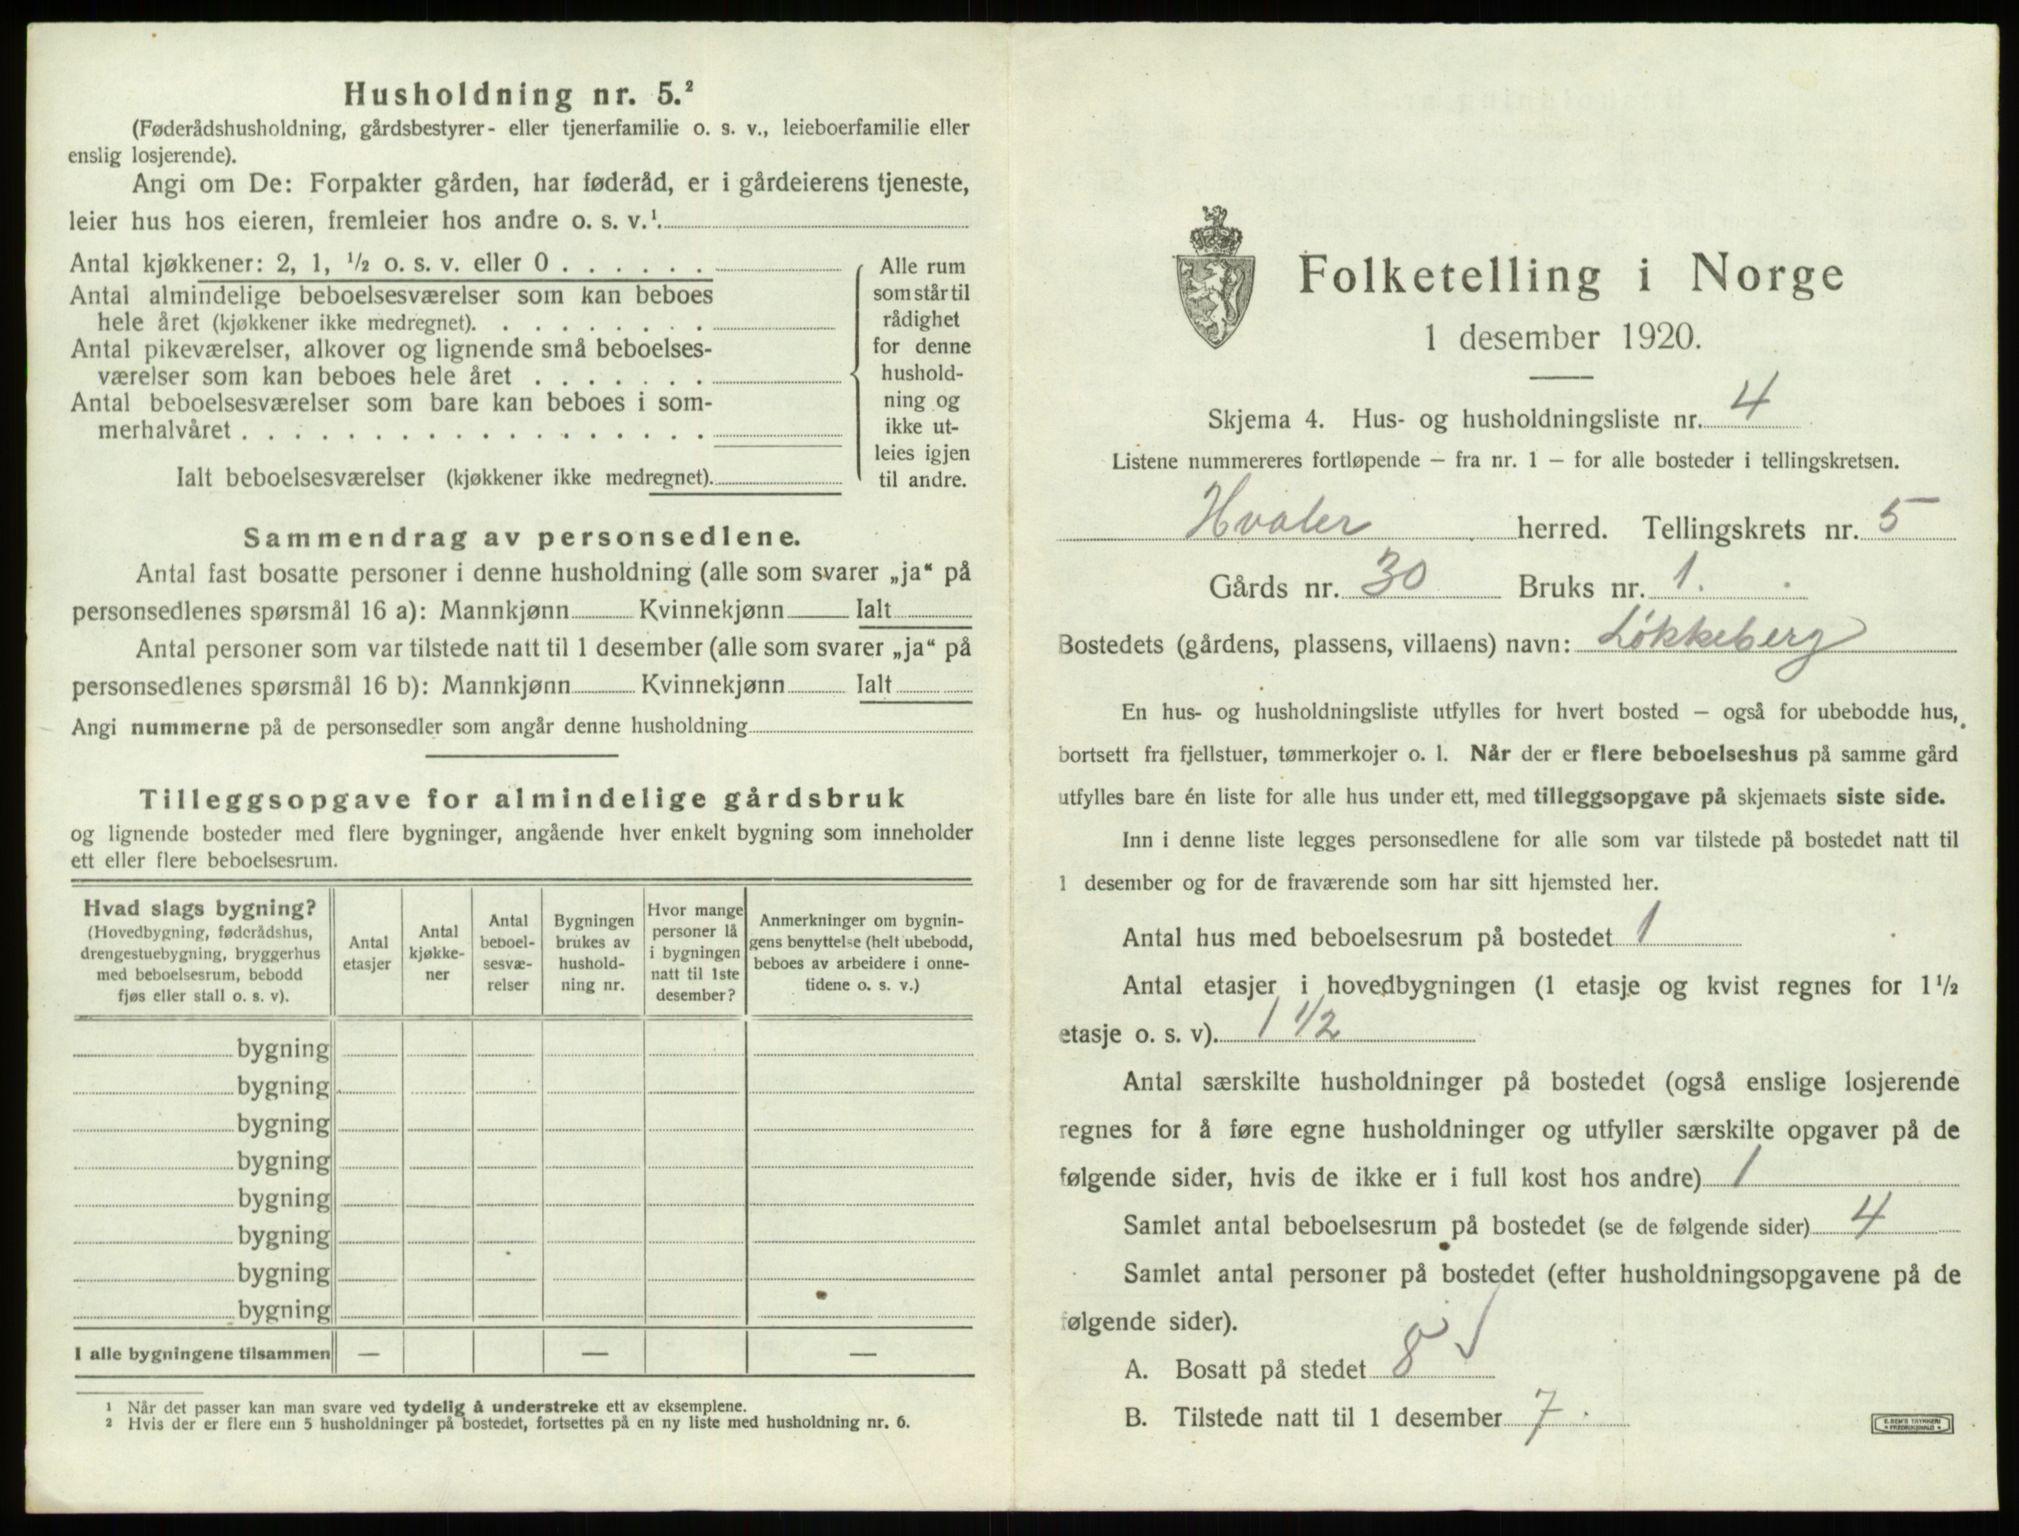 Husholdning nr. 5.²
(Føderådshusholdning, gårdsbestyrer- eller tjenerfamilie o. s. v., leieboerfamilie eller
enslig losjerende).
Angi om De: Forpakter gården, har føderåd, er i gårdeierens tjeneste,
leier hus hos eieren, fremleier hos andre o. s. v.¹
Antal kjøkkener: 2, 1, ½ o. s. v. eller 0 . . . . . .
Antal almindelige beboelsesværelser som kan beboes
hele året (kjøkkener ikke medregnet). . . . . . . . .
Antal pikeværelser, alkover og lignende små beboelses-
værelser som kan beboes hele året . . . . . . .
Antal beboelsesværelser som bare kan beboes i som-
merhalvåret . . . . . . . . . . . . . . . . . .
Ialt beboelsesværelser (kjøkkener ikke medregnet).
Alle rum
som står til
rådighet
for denne
hushold-
ning og
ikke ut-
leies igjen
til andre.
Sammendrag av personsedlene.
Antal fast bosatte personer i denne husholdning (alle som svarer „ja“ på
personsedlenes spørsmål 16 a): Mannkjønn Kvinnekjønn Ialt
Antal personer som var tilstede natt til 1 desember (alle som svarer „ja“ på
personsedlenes spørsmål 16 b): Mannkjønn Kvinnekjønn Ialt
Angi nummerne på de personsedler som angår denne husholdning
Tilleggsopgave for almindelige gårdsbruk
og lignende bosteder med flere bygninger, angående hver enkelt bygning som inneholder
ett eller flere beboelsesrum.
Hvad slags bygning?
(Hovedbygning, føderådshus,
drengestuebygning, bryggerhus
med beboelsesrum, bebodd
fjøs eller stall o. s. v).
Antal
etasjer
Antal
kjøkke-
ner
Antal
beboel-
sesvæ-
relser
Bygningen
brukes av
hushold-
ning nr.
Hvor mange
personer lå
i bygningen
natt til 1ste
desember?
Anmerkninger om bygnin-
gens benyttelse (helt ubebodd,
beboes av arbeidere i onne-
tidene o. s. v.)
bygning
bygning
bygning
bygning
bygning
bygning
bygning
bygning
I alle bygningene tilsammen — — —
¹ Når det passer kan man svare ved tydelig å understreke ett av eksemplene.
² Hvis der er flere enn 5 husholdninger på bostedet, fortsettes på en ny liste med husholdning nr. 6.
Folketelling i Norge
1 desember 1920.
Skjema 4. Hus- og husholdningsliste nr. 4
Listene nummereres fortløpende — fra nr. 1 — for alle bosteder i tellingskretsen.
Hvaler herred. Tellingskrets nr. 5
Gårds nr. 30 Bruks nr. 1.
Bostedets (gårdens, plassens, villaens) navn: Løkkeberg
En hus- og husholdningsliste utfylles for hvert bosted — også for ubebodde hus,
bortsett fra fjellstuer, tømmerkojer o. l. Når der er flere beboelseshus på samme gård
utfylles bare én liste for alle hus under ett, med tilleggsopgave på skjemaets siste side.
Inn i denne liste legges personsedlene for alle som var tilstede på bostedet natt til
1 desember og for de fraværende som har sitt hjemsted her.
Antal hus med beboelsesrum på bostedet 1
Antal etasjer i hovedbygningen (1 etasje og kvist regnes for 1½
etasje o. s. v). 1 1/2
Antal særskilte husholdninger på bostedet (også enslige losjerende
regnes for å føre egne husholdninger og utfyller særskilte opgaver på de
følgende sider, hvis de ikke er i full kost hos andre) 1
Samlet antal beboelsesrum på bostedet (se de følgende sider) 4
Samlet antal personer på bostedet (efter husholdningsopgavene på de
følgende sider).
A. Bosatt på stedet 8 √
B. Tilstede natt til 1 desember 7